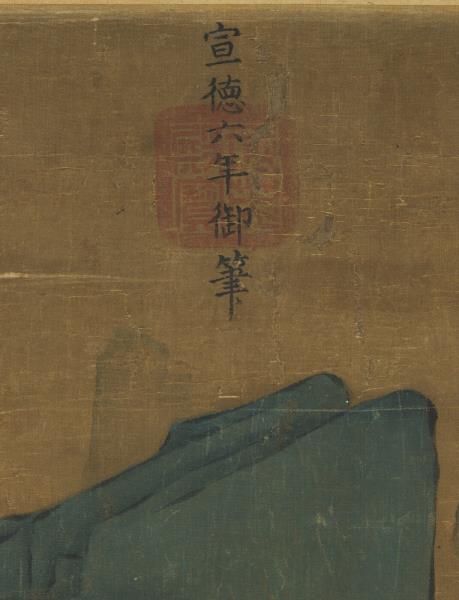 宣德六年御筆